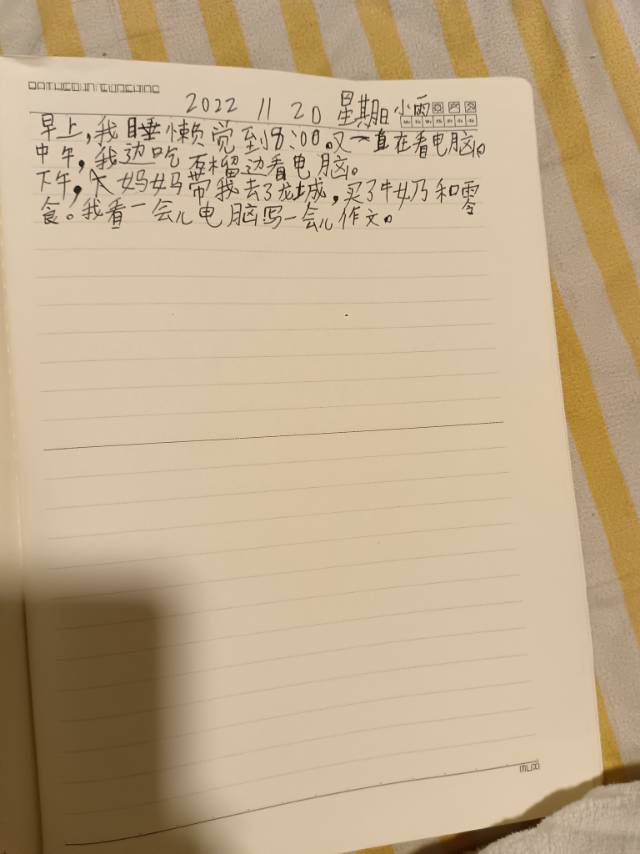 2022 11 20 星期日 小雨
早上，我睡懒觉到8:00。又一直在看电脑。
中午，我边吃石榴边看电脑。
下午，大妈妈带我去了龙城，买了牛奶和零
食。我看一会儿电脑写一会儿作文。